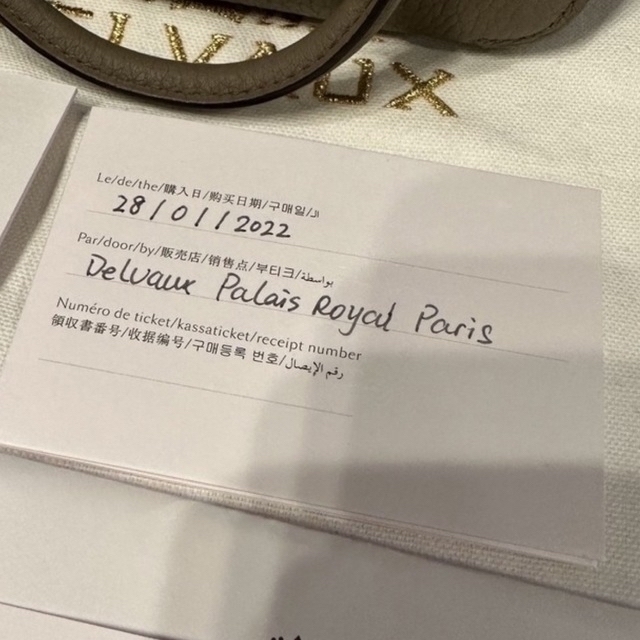 ELVAUX
Le/de/the/購入日/购买日期/구매일/ال
28/01/2022
Par/door/by/販売店/销售点/부티크/بواسطة
Delvaux Palais Royal Paris
Numéro de ticket/kassaticket/receipt number
領収書番号/收据编号/구매등록 번호/رقم الإيصال